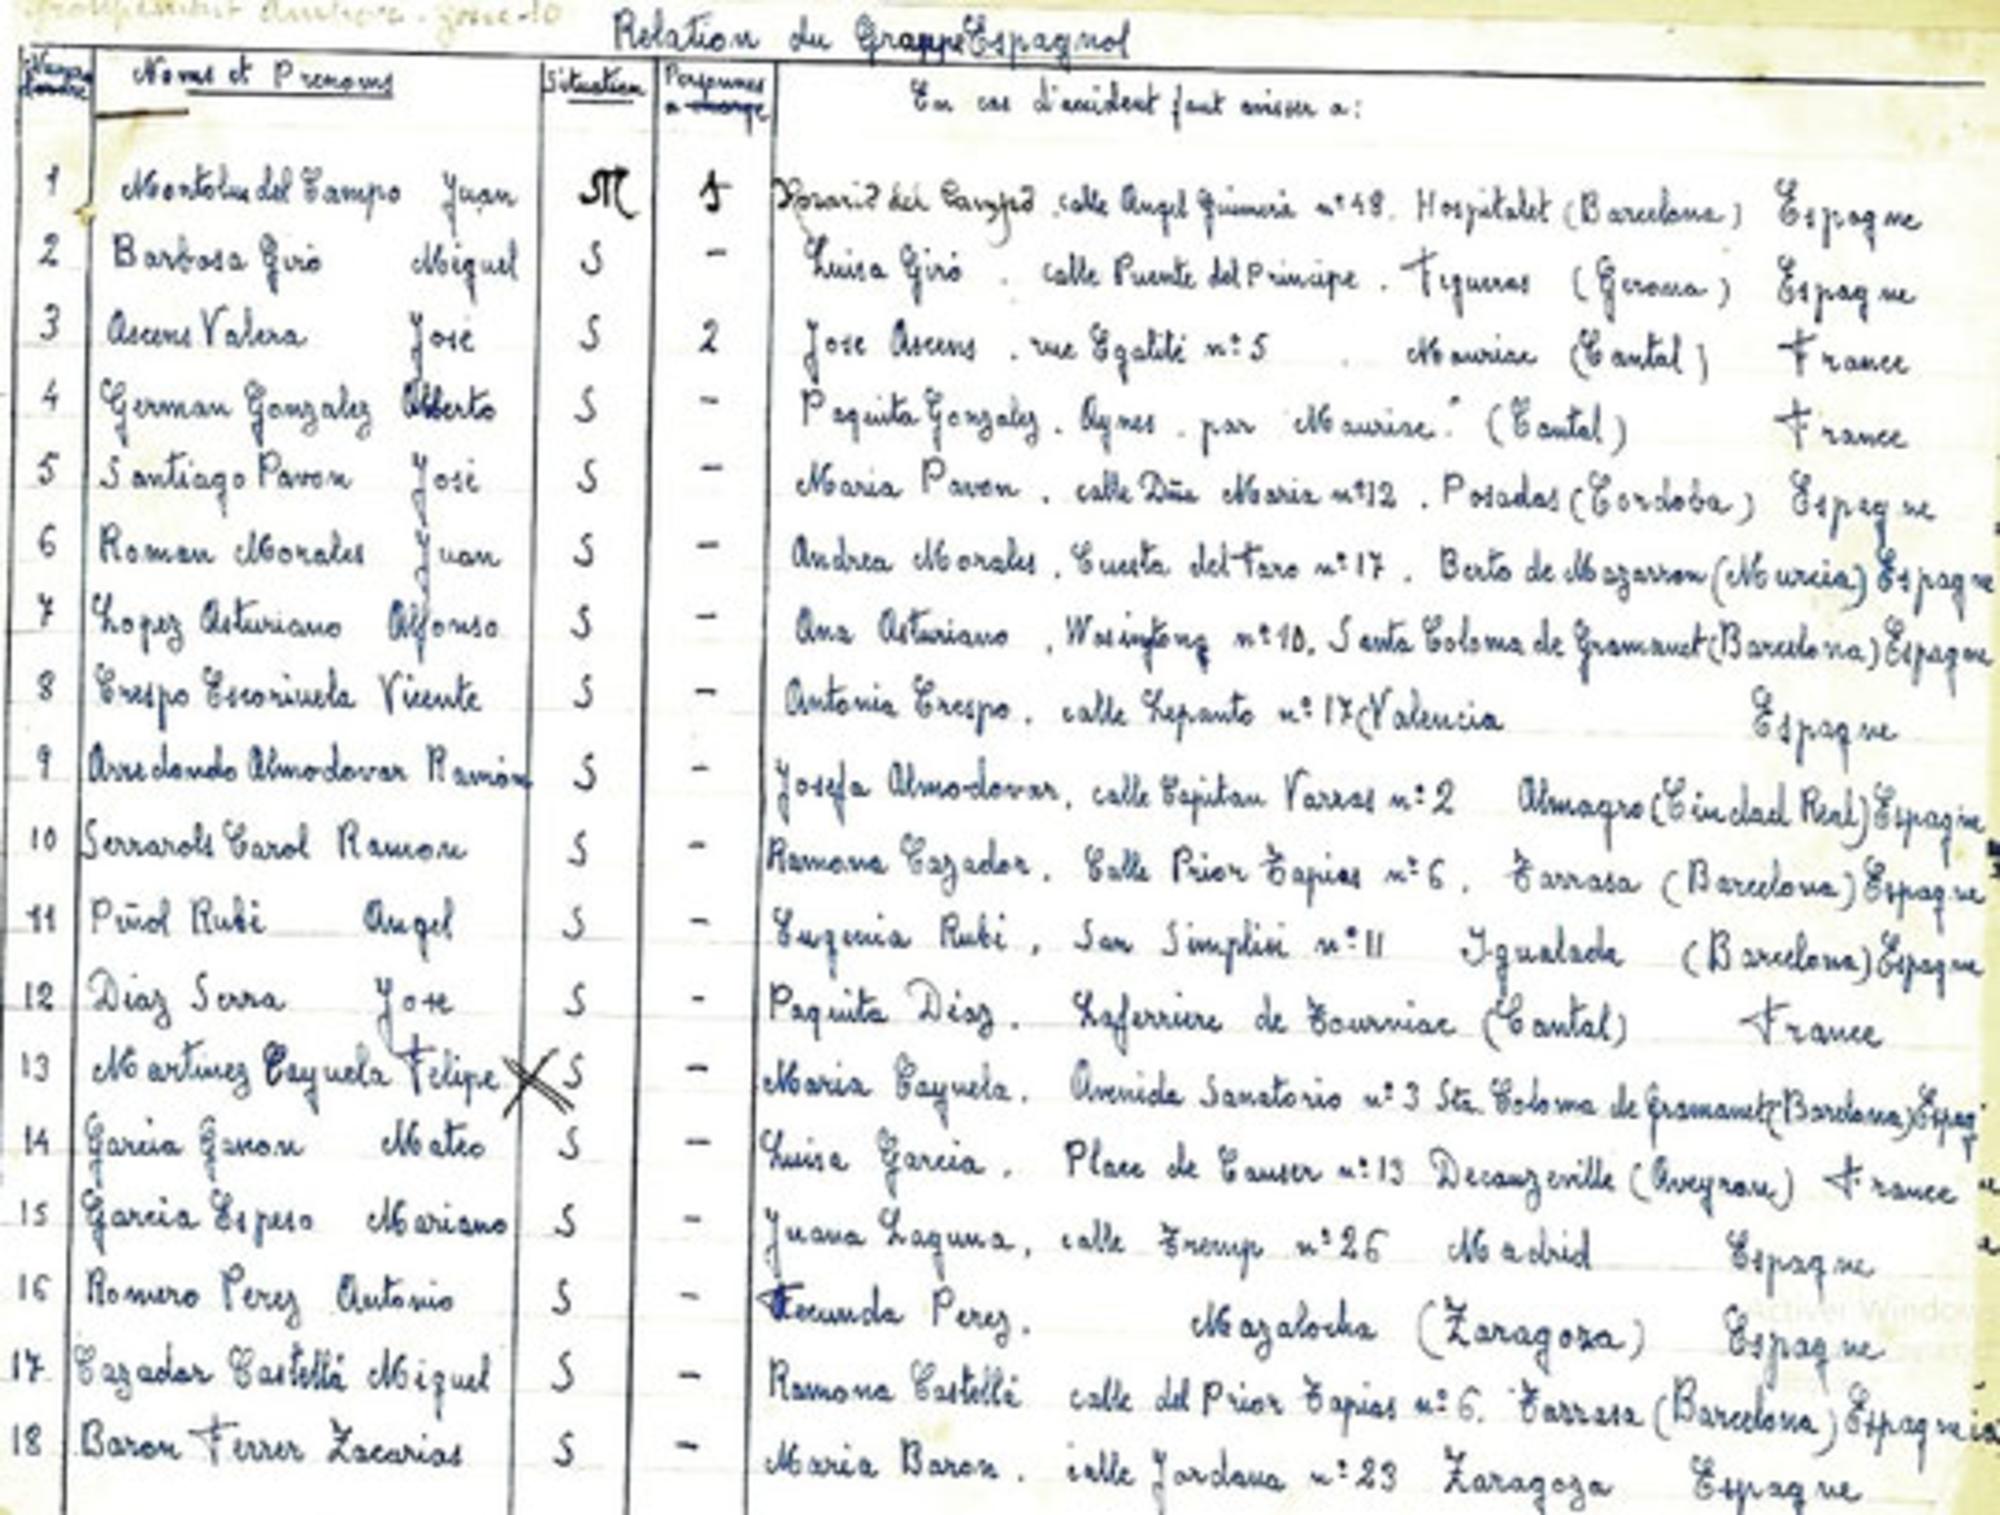 Groupement zone-10
Relation du Grappe Espagnol
Noms et Prenoms Situation Personnes a charge En cas d'accident faut aviser a:
1 Montoliu del Campo Juan M 1 del Campo, calle Angel Guimerá nº 48. Hospitalet (Barcelona) Espagne
2 Barbosa Giró Miguel S - Luisa Giró. calle Puente del Principe. Figueras (Gerona) Espagne
3 Ascens Valera José S 2 Jose Ascens. rue Egalité nº 5. Mauriac (Cantal) France
4 German Gonzalez Alberto S - Paquita Gonzalez. Aynes. par "Mauriac" (Cantal) France
5 Santiago Pavon José S - Maria Pavon. calle Dña Maria nº 12. Posadas (Cordoba) Espagne
6 Roman Morales Juan S - Andrea Morales. Cuesta del Faro nº 17. Berto de Mazarron (Murcia) Espagne
7 Lopez Asturiano Alfonso S - Ana Asturiano, Wasintong nº 10. Santa Coloma de Gramanet (Barcelona) Espagne
8 Crespo Escorihuela Vicente S - Antonia Crespo. calle Lepanto nº 17 (Valencia Espagne
9 Arredondo Almodovar Ramón S - Josefa Almodovar, calle Capitan Varras nº 2 Almagro (Ciudad Real) Espagne
10 Serrarols Carol Ramon S - Ramona Cazador. Calle Prior Tapias nº 6. Tarrasa (Barcelona) Espagne
11 Piñol Rubi Angel S - Eugenia Rubi, San Simplisi nº 11 Igualada (Barcelona) Espagne
12 Diaz Serra Jose S - Paquita Diaz. Laferriere de Tourniac (Cantal) France
13 Martinez Cayuela Felipe S - Maria Cayuela. Avenida Sanatorio nº 3 Sta. Coloma de Gramanet (Barcelona) Espag
14 Garcia Mateo S - Luisa Garcia. Place de nº 13 Decauzeville (Aveyron) France
15 Garcia Espeso Mariano S - Juana Laguna, calle Tremp nº 26 Madrid Espagne
16 Romero Perez Antonio S - Fecunda Perez. Mazalocha (Zaragoza) Espagne
17 Cazador Castellá Miguel S - Ramona Castellá calle del Prior Tapias nº 6. Tarrasa (Barcelona) Espagne
18 Baron Ferrer Zacarias S - Maria Baron. calle Jordana nº 23 Zaragoza Espagne